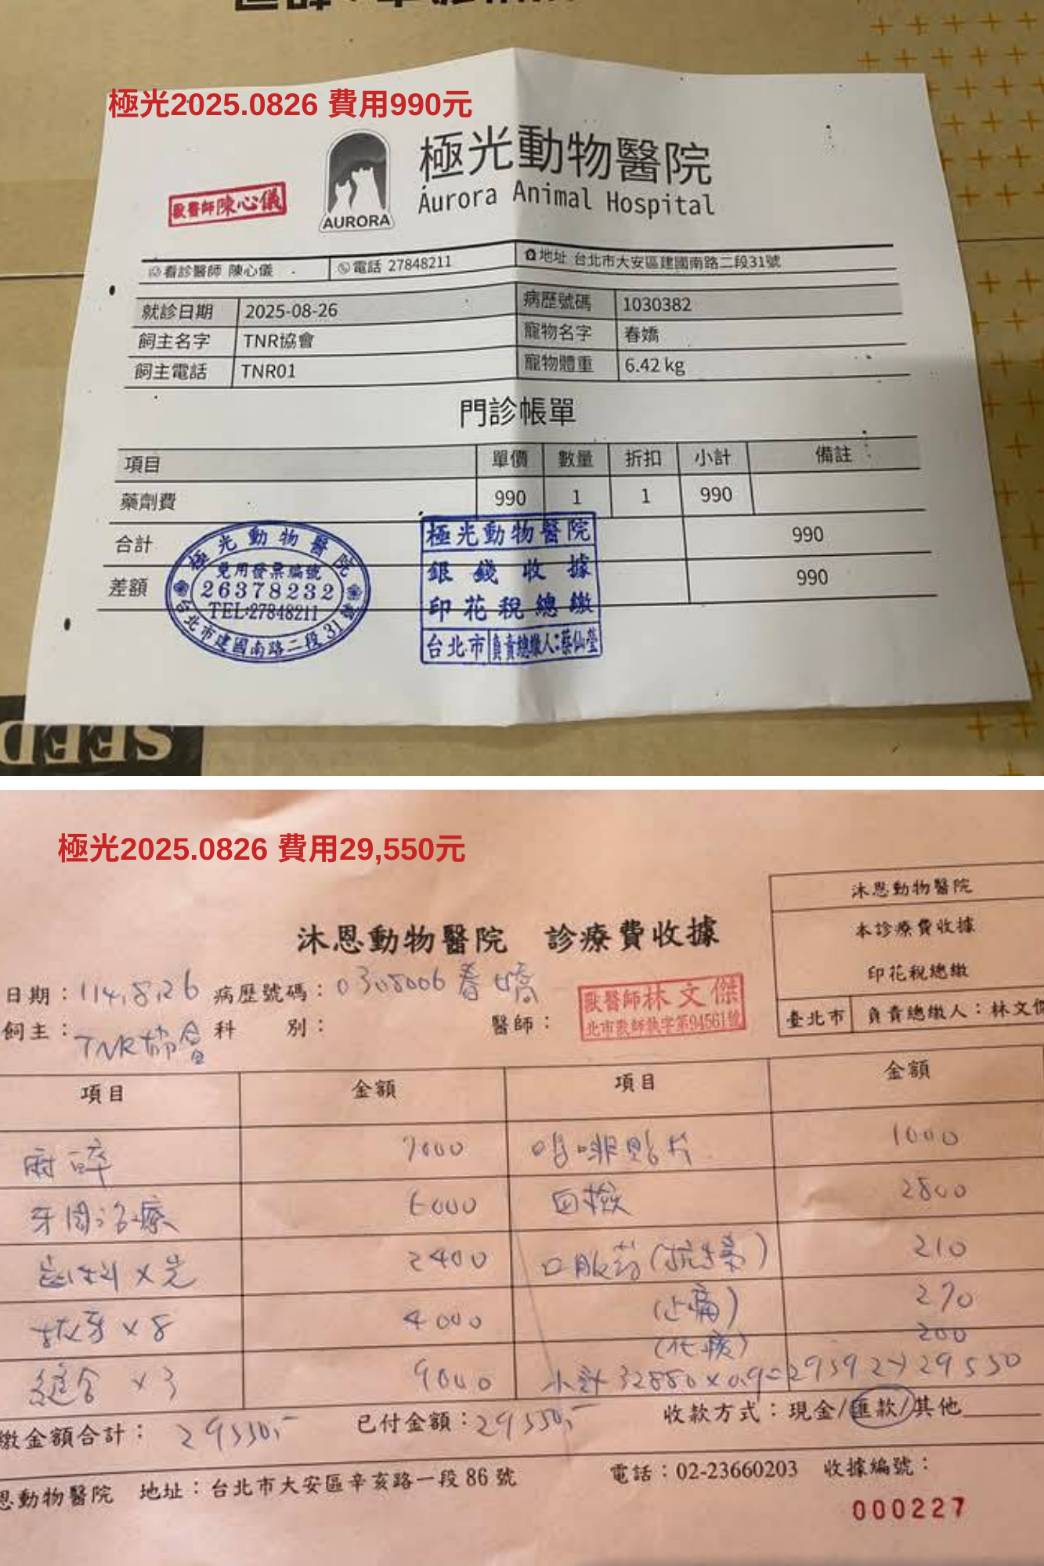 極光2025.0826 費用990元
AURORA
極光動物醫院
Aurora Animal Hospital
獸醫師陳心儀
看診醫師 陳心儀 電話 27848211 地址 台北市大安區建國南路二段31號
就診日期 2025-08-26 病歷號碼 1030382
飼主名字 TNR協會 寵物名字 春嬌
飼主電話 TNR01 寵物體重 6.42 kg
門診帳單
項目 單價 數量 折扣 小計 備註
藥劑費 990 1 1 990
合計 990
差額 990
極光動物醫院
免用發票編號
26378232
TEL:27848211
台北市建國南路二段31號
極光動物醫院
銀錢收據
印花稅總繳
台北市 負責總繳人:蔡仙瑩
SEED
極光2025.0826 費用29,550元
沐恩動物醫院
本診療費收據
印花稅總繳
臺北市 負責總繳人：林文傑
沐恩動物醫院 診療費收據
日期：114.8.26 病歷號碼：0308006 春嬌
飼主：TNR協會 科 別： 醫師：
獸醫師林文傑
北市獸師執字第94561號
項目 金額 項目 金額
麻醉 7000 嗎啡貼片 1000
牙周治療 6000 血檢 2800
齒科X光 2400 口服葯(抗生素) 210
拔牙 x 8 4000 (止痛) 270
(化痰) 200
縫合 x 3 9000 小計 32880 x 0.9 = 29592 → 29550
繳金額合計：29550,- 已付金額：29550,- 收款方式：現金/匯款/其他
恩動物醫院 地址：台北市大安區辛亥路一段86號 電話：02-23660203 收據編號：
000227